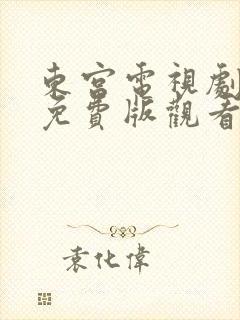 東宮電視劇
免費版觀看
袁化偉